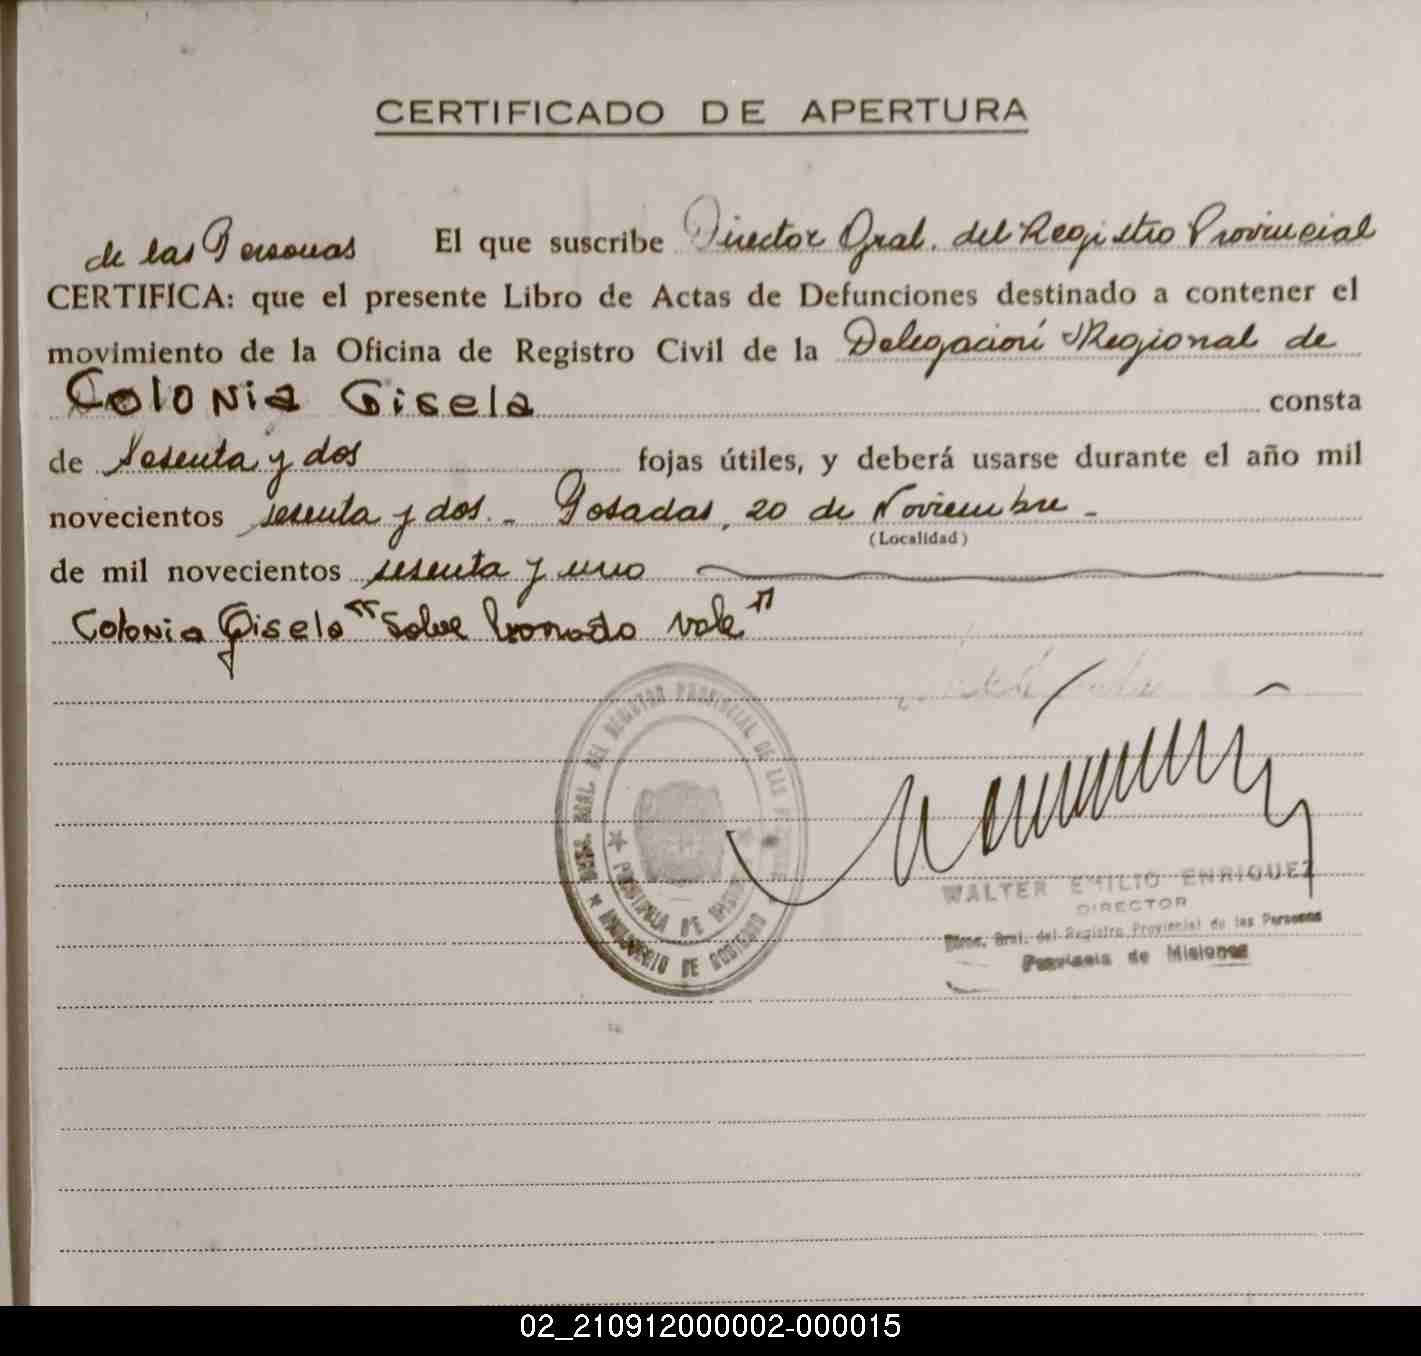 CERTIFICADO DE APERTURA
El que suscribe Director Gral. del Registro Provincial
de las Personas
CERTIFICA: que el presente Libro de Actas de Defunciones destinado a contener el
movimiento de la Oficina de Registro Civil de la Delegación Regional de
Colonia Gisela consta
de Sesenta y dos fojas útiles, y deberá usarse durante el año mil
novecientos sesenta y dos.- Posadas, 20 de Noviembre -
(Localidad)
de mil novecientos sesenta y uno
Colonia Gisela "Sobre borrado vale"
GRAL. DEL REGISTRO PROVINCIAL DE LAS
MINISTERIO DE GOBIERNO
PROVINCIA DE MISIONES
WALTER EMILIO ENRIQUEZ
DIRECTOR
Direc. Gral. del Registro Provincial de las Personas
Provincia de Misiones
02_210912000002-000015